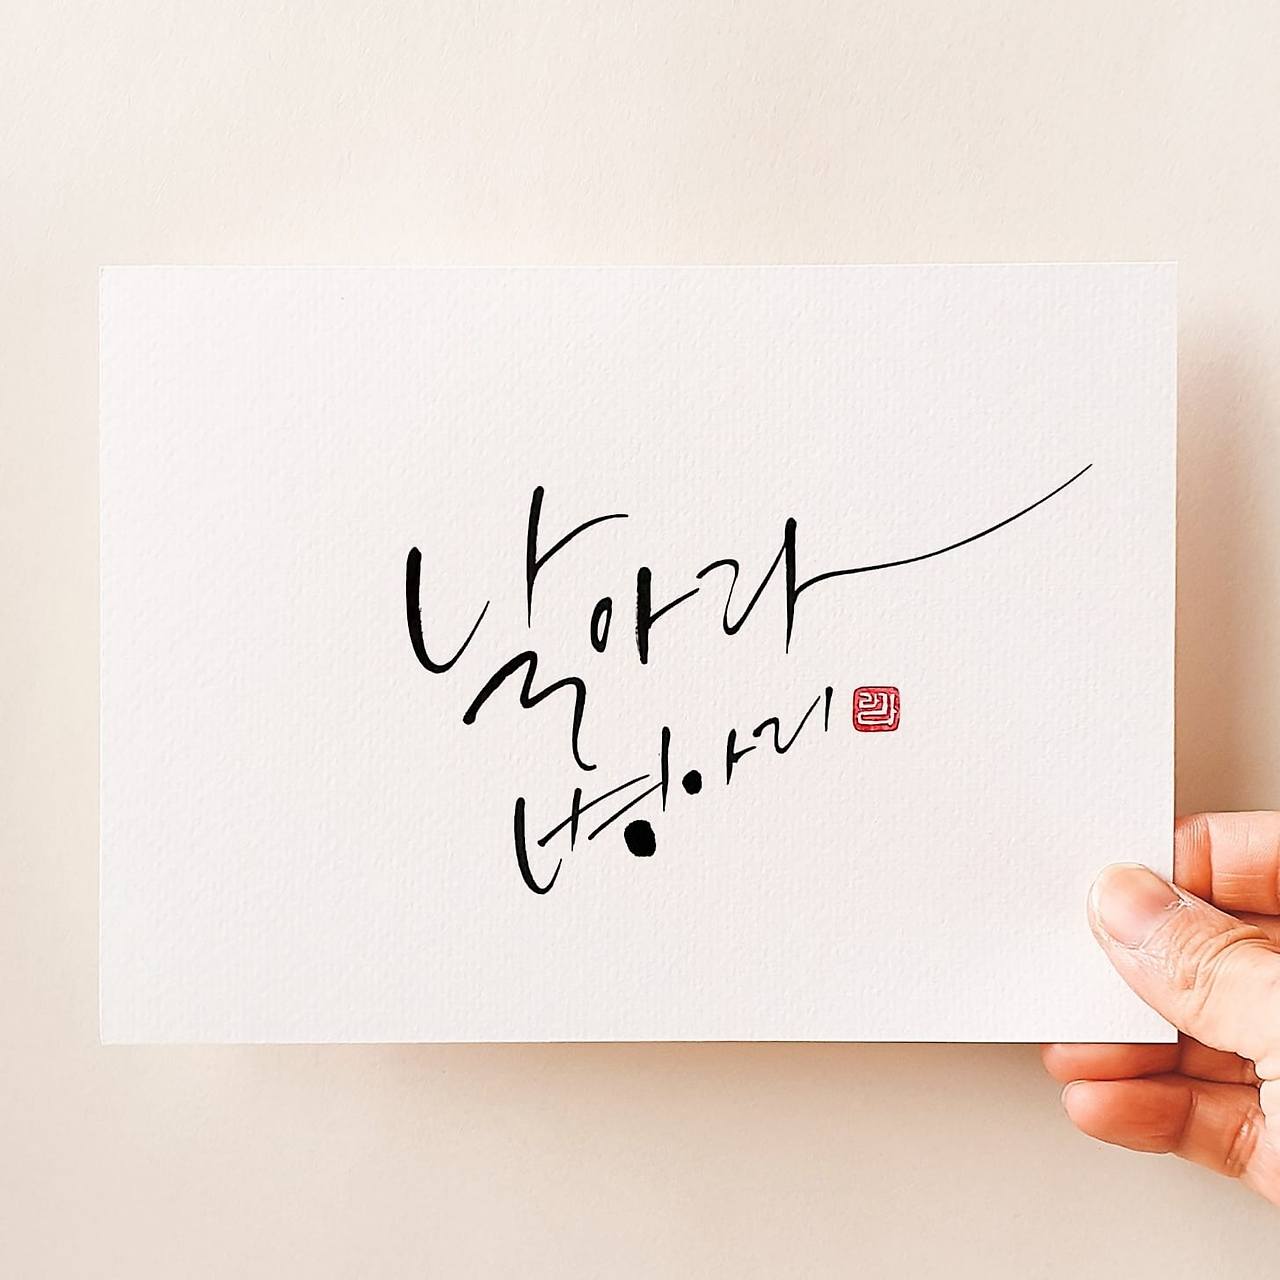 날아라
병아리